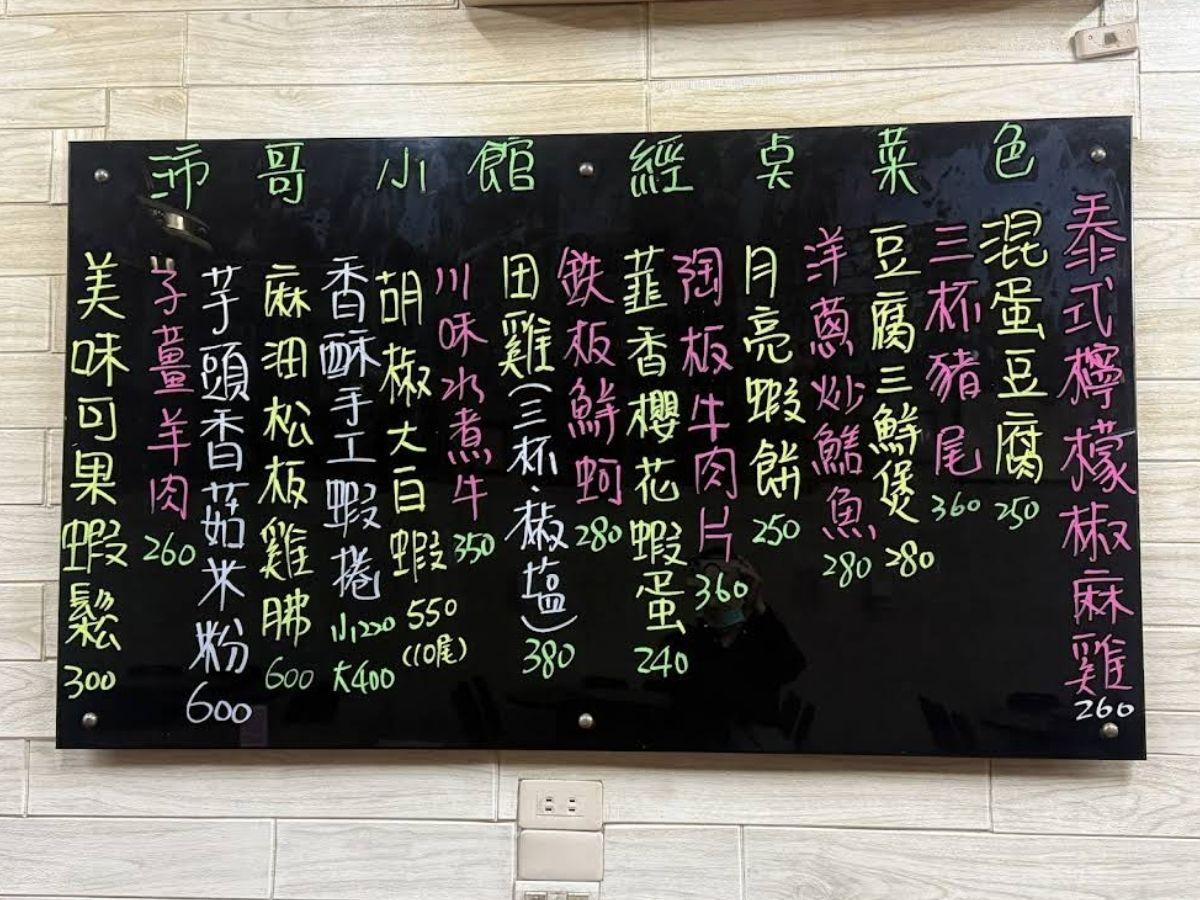 沛哥小館 經典菜色
泰式檸檬椒麻雞 260
混蛋豆腐 250
三杯豬尾 360
豆腐三鮮煲 280
洋蔥炒鱔魚 280
月亮蝦餅 250
陶板牛肉片 360
韮香櫻花蝦蛋 240
鉄板鮮蚵 280
田雞(三杯.椒塩) 380
川味水煮牛 350
胡椒大白蝦 550
(10尾)
香酥手工蝦捲 小220
大400
麻油松板雞胇 600
芋頭香菇米粉 600
子薑羊肉 260
美味可果蝦鬆 300